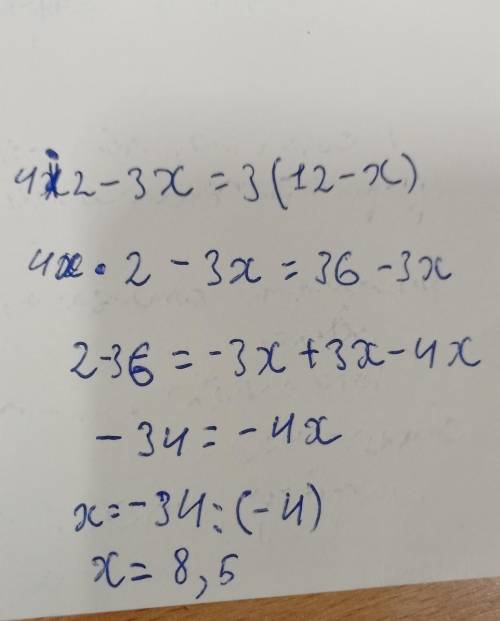 4x2 - 3x = 3(12 - x)
4x · 2 - 3x = 36 - 3x
2-36 = -3x + 3x - 4x
- 34 = - 4x
x = -34 : (-4)
x = 8,5